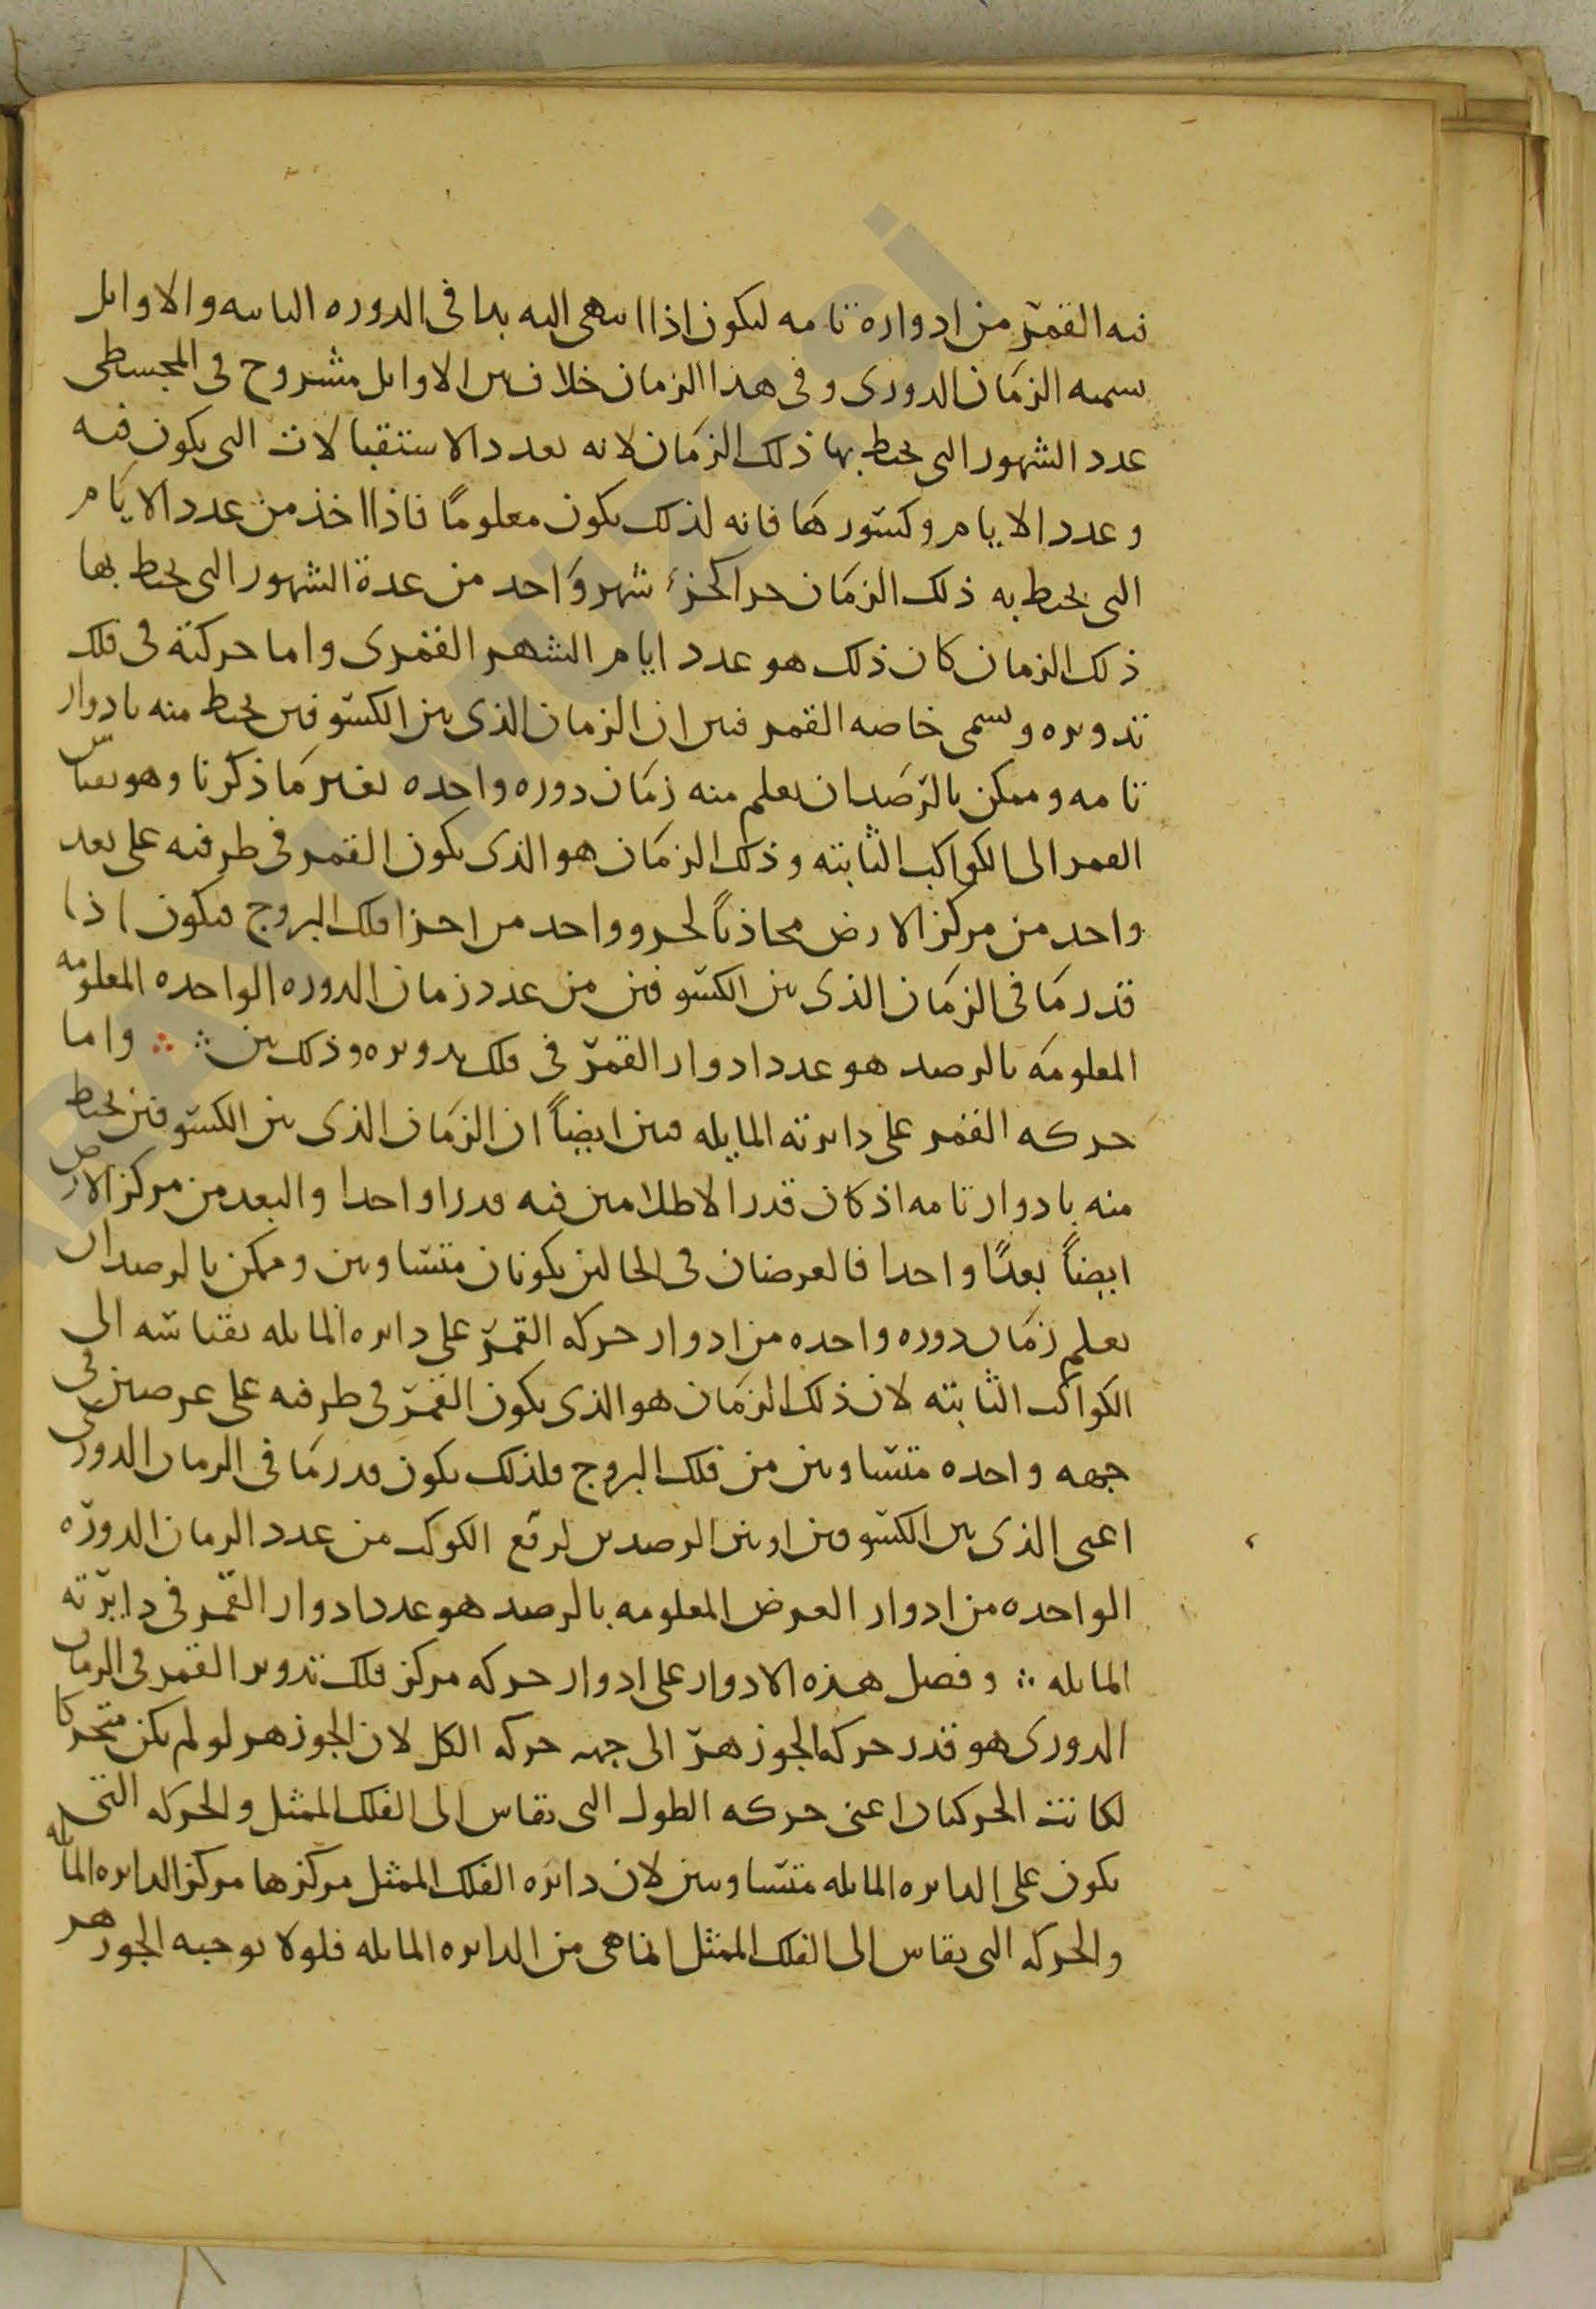 فيه القمر من ادواره تامه ليكون اذا انتهى اليه بدا فى الدوره الثانيه والاوايل
تسميه الزمان الدورى وفى هذا الزمان خلاف بين الاوايل مشروح فى المجسطى
عدد الشهور التى يحيط بها ذلك الزمان لانه بعدد الاستقبالات التى يكون فيه
وعدد الايام وكسورها فانه لذلك يكون معلوما فاذا اخذ من عدد الايام
التى يحيط به ذلك الزمان جزا كجزء شهر واحد من عدة الشهور التى يحيط بها
ذلك الزمان كان ذلك هو عدد ايام الشهر القمرى واما حركته فى فلك
تدويره وتسمى خاصه القمر فبين ان الزمان الذى بين الكسوفين يحيط منه بادوار
تامه وممكن بالرصد ان يعلم منه زمان دوره واحده بغير ما ذكرنا وهو بقياس
القمر الى الكواكب الثابته وذلك الزمان هو الذى يكون القمر فى طرفيه على بعد
واحد من مركز الارض محاذيا لجزو واحد من اجزا فلك البروج فيكون اذا
قدر ما فى الزمان الذى بين الكسوفين من عدد زمان الدوره الواحده المعلومه
المعلومه بالرصد هو عدد ادوار القمر فى فلك تدويره وذلك بين ∴ ∴ واما
حركه القمر على دايرته المايله فبين ايضاً ان الزمان الذى بين الكسوفين يحيط
منه بادوار تامه اذ كان قدر الاظلامين فيه قدرا واحدا والبعد من مركز الارض
ايضاً بعدًا واحدا فالعرضان فى الحالين يكونان متساويين وممكن بالرصد ان
يعلم زمان دوره واحده من ادوار حركه القمر على دايره المايله بقياسه الى
الكواكب الثابته لان ذلك الزمان هو الذى يكون القمر فى طرفيه على عرضين فى
جهه واحده متساويين من فلك البروج فلذلك يكون قدر ما فى الزمان الدورى
اعنى الذى بين الكسوفين او بين الرصدين لرقع الكوكب من عدد الزمان الدوره
الواحده من ادوار العرض المعلومه بالرصد هو عدد ادوار القمر فى دايرته
المايله ∴ وفصل هذه الادوار على ادوار حركه مركز فلك تدوير القمر فى الزمان
الدورى هو قدر حركه الجوزهر الى جهه حركه الكل لان الجوزهر لو لم يكن متحركا
لكانت الحركتان اعنى حركه الطول التى تقاس الى الفلك الممثل والحركه التى
يكون على الدايره المايله متساويين لان دايره الفلك الممثل مركزها مركز الدايره المايله
والحركه التى يقاس الى الفلك الممثل انما هى من الدايره المايله فلولا توجبه الجوزهر